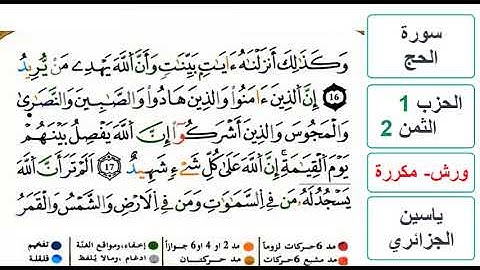 وَكَذَٰلِكَ أَنزَلْنَٰهُ ءَايَٰتِۢ بَيِّنَٰتٖ وَأَنَّ ٱللَّهَ يَهْدِے مَنْ يُّرِيدُ
16 إِنَّ ٱلذِينَ ءَامَنُواْ وَالذِينَ هَادُواْ وَالصَّٰبِينَ وَالنَّصَٰرَىٰ
وَالْمَجُوسَ وَالذِينَ أَشْرَكُوٓاْ إِنَّ ٱللَّهَ يَفْصِلُ بَيْنَهُمْ
يَوْمَ ٱلْقِيَٰمَةِۖ إِنَّ ٱللَّهَ عَلَىٰ كُلِّ شَےْءٖ شَهِيدٌ 17 أَلَمْ تَرَ أَنَّ ٱللَّهَ
يَسْجُدُ لَهُۥ مَن فِے ٱلسَّمَٰوَٰتِ وَمَن فِے ٱلَارْضِ وَالشَّمْسُ وَالْقَمَرُ
مد 6 حركات لزوماً مد 2 أو 4 أو 6 جوازاً إخفاء، ومواقع الغنة تفخيم
مد مشبع 6 حركات مد حركتان ادغام، ومالا يلفظ قلقلة
سورة
الحج
الحزب 1
الثمن 2
ورش- مكررة
ياسين
الجزائري